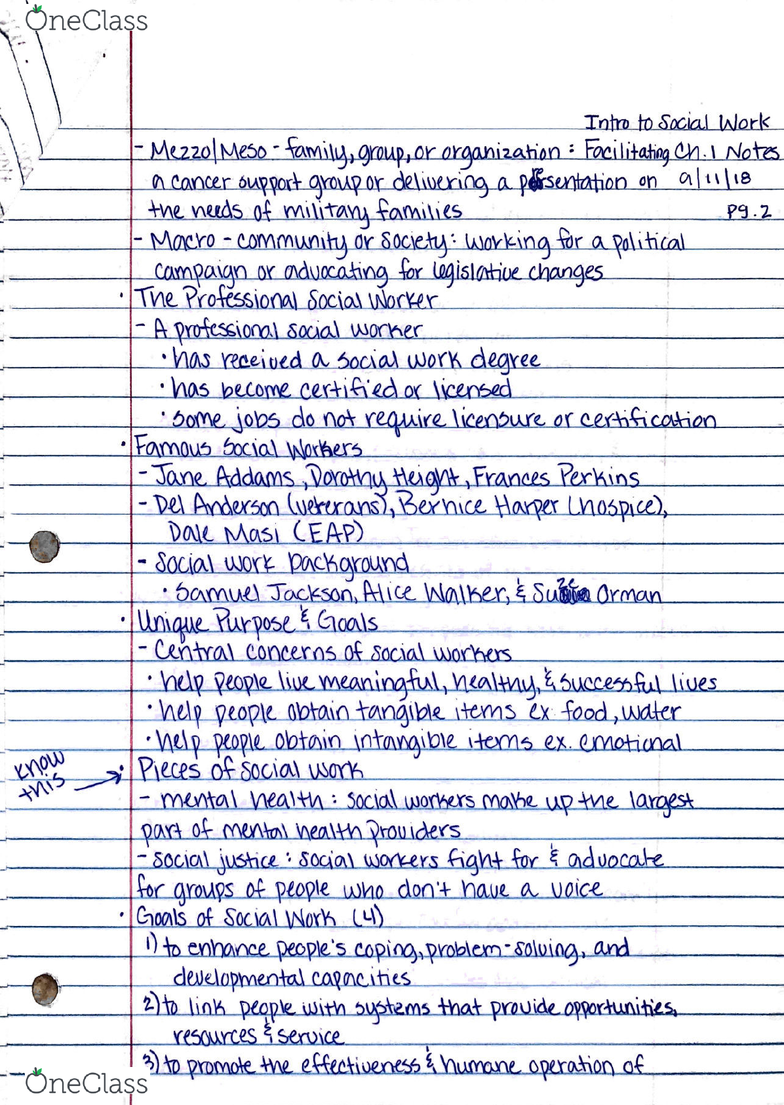 OneClass
Intro to Social Work
- Mezzo/Meso - family, group, or organization : Facilitating Ch.1 Notes
a cancer support group or delivering a presentation on 9/11/18
the needs of military families pg.2
- Macro - community or society: working for a political
campaign or advocating for legislative changes
• The Professional Social Worker
- A professional social worker
• has received a social work degree
• has become certified or licensed
• some jobs do not require licensure or certification
• Famous Social Workers
- Jane Addams, Dorothy Height, Frances Perkins
- Del Anderson (veterans), Bernice Harper (hospice),
Dale Masi (EAP)
- Social work background
• Samuel Jackson, Alice Walker, & Suze Orman
• Unique Purpose & Goals
- Central concerns of social workers
• help people live meaningful, healthy, & successful lives
• help people obtain tangible items ex food, water
• help people obtain intangible items ex. emotional
know this → • Pieces of social work
- mental health : social workers make up the largest
part of mental health providers
- social justice : social workers fight for & advocate
for groups of people who don't have a voice
• Goals of Social Work (4)
1) to enhance people's coping, problem-solving, and
developmental capacities
2) to link people with systems that provide opportunities,
resources & service
3) to promote the effectiveness & humane operation of
OneClass